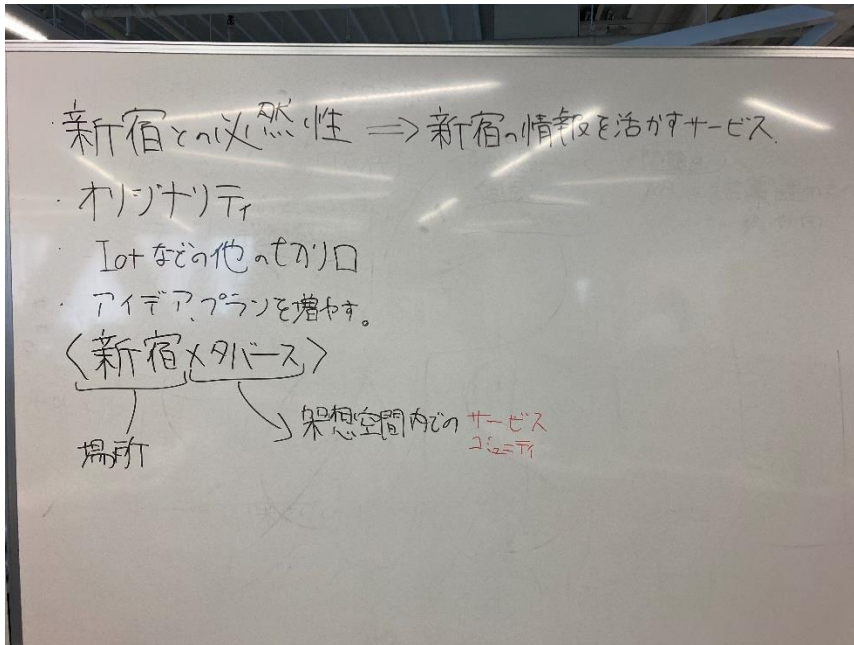 ・新宿との必然性 ⇒ 新宿の情報を活かすサービス.
・オリジナリティ
・Iotなどの他の切り口
・アイデア、プランを増やす。
〈新宿メタバース〉
場所
架想空間内での サービス
コミュニティ